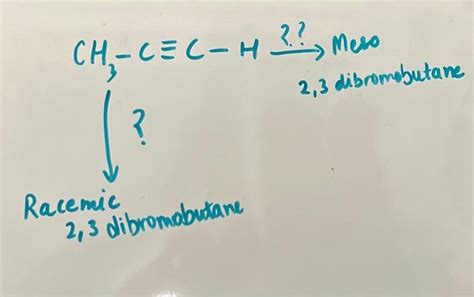 CH₃-C≡C-H ??→ Meso
2,3 dibromobutane
?
Racemic
2,3 dibromobutane